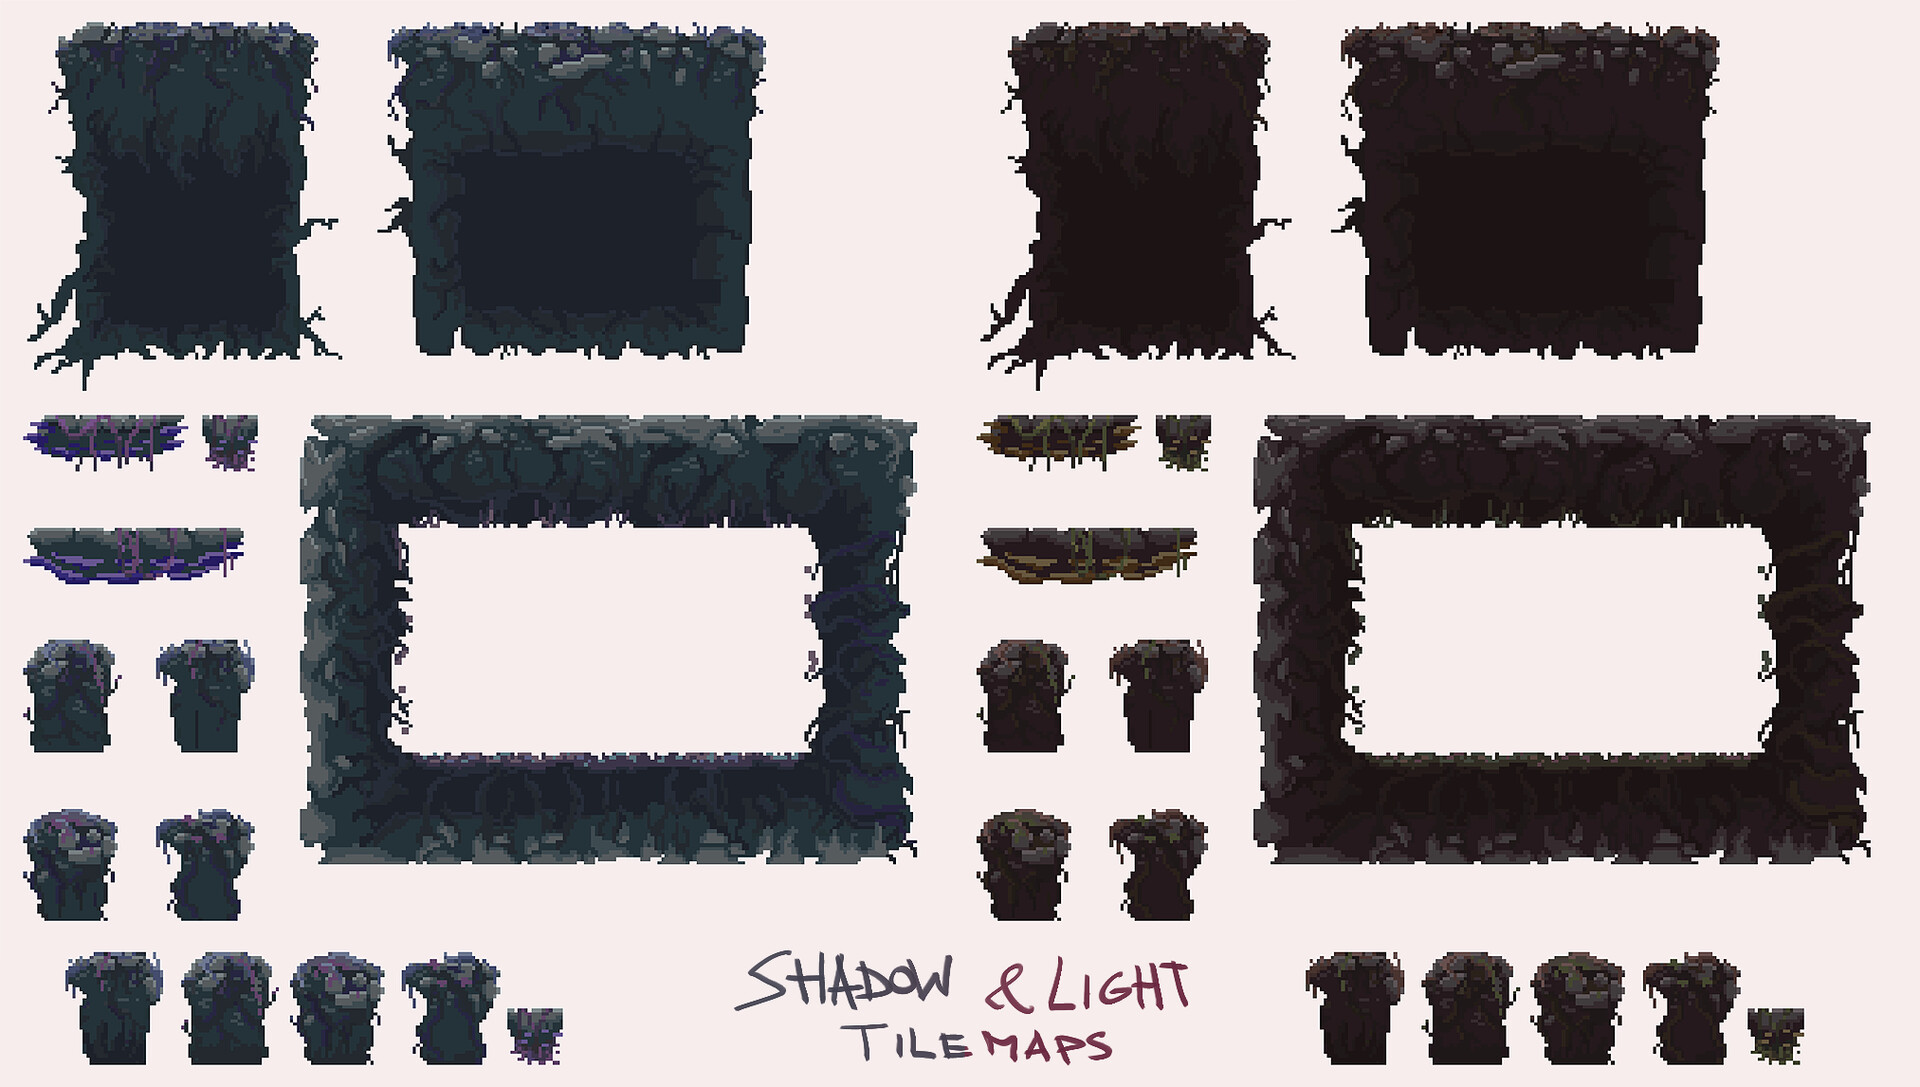 SHADOW & LIGHT
TILEMAPS